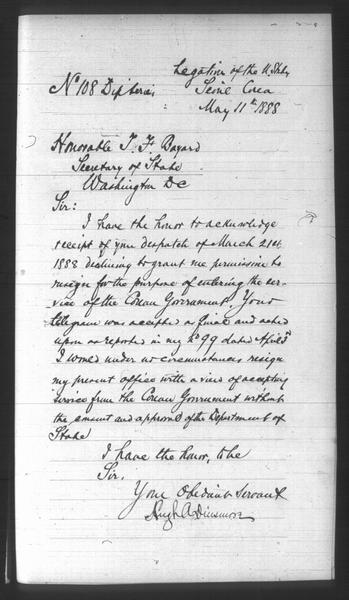 Legation of the U. States
No 108 Dip Series
Seoul Corea
May 11th 1888
Honorable T. F. Bayard
Secretary of State
Washington DC
Sir:
I have the honor to acknowledge
receipt of your despatch of March 21st
1888 declining to grant me permission to
resign for the purpose of entering the ser-
vice of the Corean Government. Your
telegram was accepted as final and acted
upon as reported in my No 99 dated April 3d
I would under no circumstances resign
my present office with a view of accepting
service from the Corean Government without
the consent and approval of the Department of
State
I have the honor, to be
Sir,
Your Obedient Servant
Hugh A Dinsmore